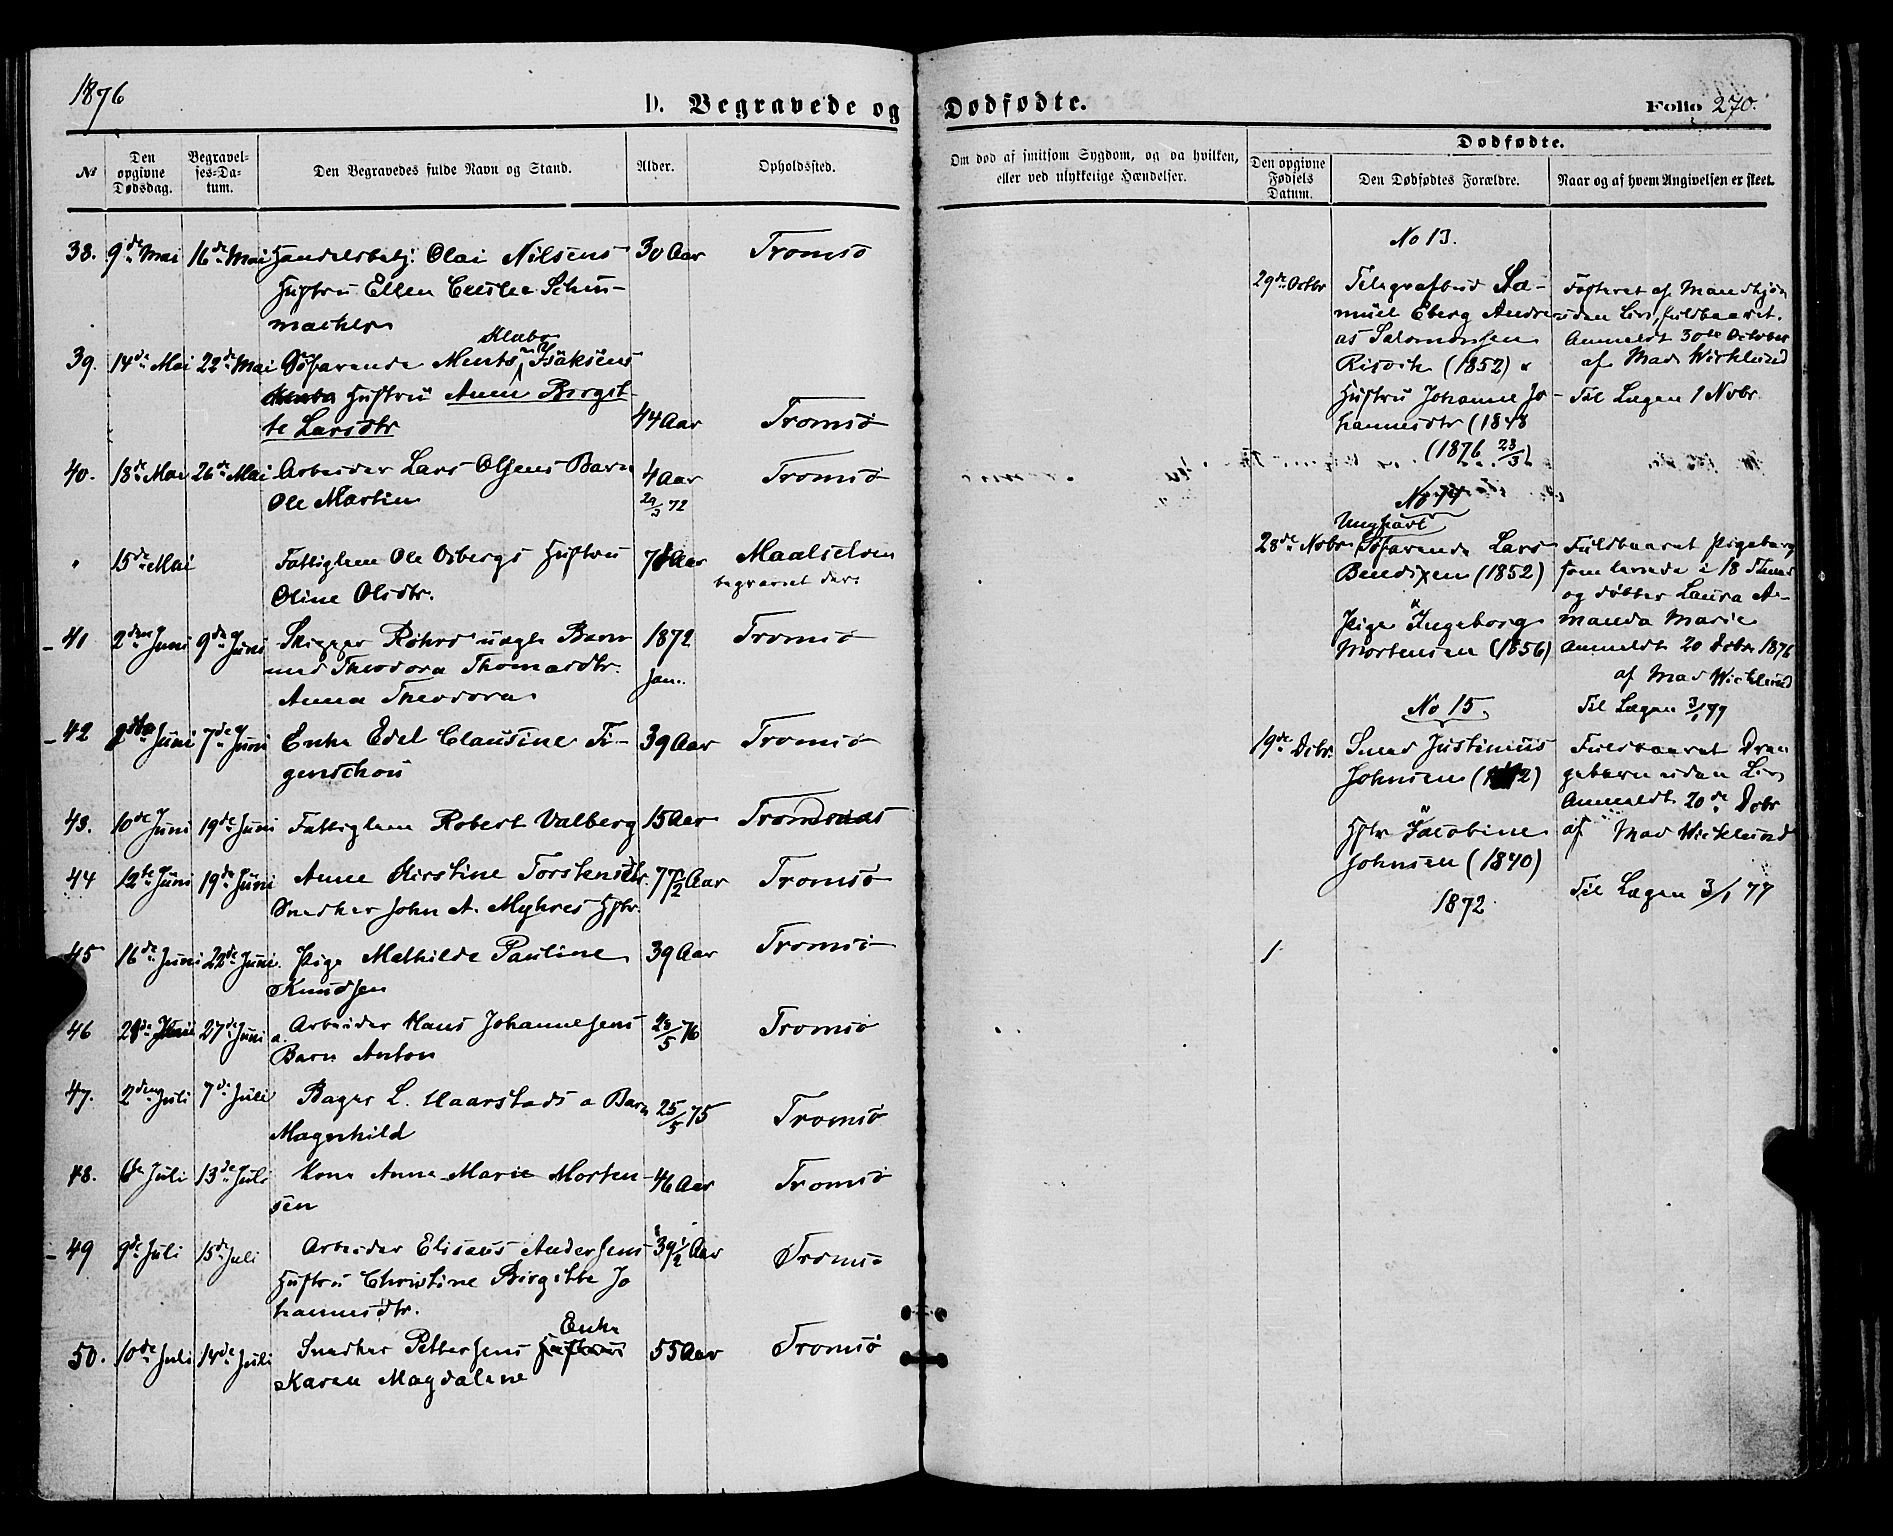 1876
D. Begravede og Dødfødte.
Folio 270.
№
Den opgivne Dødsdag.
Begravelses-Datum.
Den Begravedes fulde Navn og Stand.
Alder.
Opholdssted.
Om død af smitsom Sygdom, og da hvilken,
eller ved ulykkelige Hændelser.
Dødfødte.
Den opgivne Fødsels Datum.
Den Dødfødtes Forældre.
Naar og af hvem Angivelsen er skeet.
38. 9de Mai 16de Mai Handelsbetj. Olai Nilsens 30 Aar Tromsø
Hustru Ellen Schu-
macher
Klabo
39. 14de Mai 22de Mai Søfarende Ments Isaksens
Hustru Anne Birgit-
te Larsdtr 44 Aar Tromsø
40. 18de Mai 26de Mai Arbeider Lars Olsens Barn 4 Aar Tromsø
Ole Martin 29/3 72
" 15de Mai Fattiglem Ole Osbergs Hustru Aar Maalselven
Oline Olsdtr. begravet der
41 2den Juni 9de Juni Skipper Røhrs uægte Barn 1872 Tromsø
med Theodora Thomasdtr. Jan.
Anna Theodora
42 2den Juni 7de Juni Enke Edel Clausine Fi- 39 Aar Tromsø
genschou
43. 10de Juni 19de Juni Fattiglem Robert Valberg 15 Aar Tromsø
44 12te Juni 19de Juni Anne Kirstine Torstensdtr 77 1/2 Aar Tromsø
Snedker John A. Myhres Hstr.
45 16de Juni 22de Juni Pige Mathilde Pauline 39 Aar Tromsø
Knudsen
46 27de Juni Arbeider Hans Johannesens 28/5 76 Tromsø
Barn Anton
47. 2den Juli 7de Juli Bager L. Haarstads a Barn 25/5 75 Tromsø
Magnhild
48. 6te Juli 13de Juli Kone Anne Marie Morten- 46 Aar Tromsø
sen
49 9de Juli 15de Juli Arbeider Elisæus Andersens 39 1/2 Aar Tromsø
Hustru Christine Birgitte Jo
hannesdtr.
Enke
50. 10de Juli 14de Juli Snedker Pettersens Hustru 55 Aar Tromsø
Karen Magdalene
No 13.
29de Octbr Telegrafbud Sa-
muel Eberg Andre-
as Salomonsen
Risvik (1852) &
Hustru Johanne Jo-
hannesdtr (1848
(1876 23/3)
Fosteret af Mandkjøn
uden Liv, fuldbaaret.
Anmeldt 30te October
af Mad Wicklund
Til Lægen 1 Novbr
No 14
Ungkarl
28de Novbr Søfarende Lars
Bendixen (1852)
&
Pige Ingeborg
Mortensen (1856)
Fuldbaaret Pigebarn
som levede i 18 Timer
og døbtes Laura A-
manda Marie
anmeldt 20 Dcbr 1876
af Mad Wicklund
Til Lægen 3/1 77
No 15
19de Dcbr. Smed Justinius
Johnsen
&
Hstr Jacobine
Johnsen (1840)
1872
Fuldbaaret Dren
gebarn uden Liv
Anmeldt 20de Dcbr
af Mad Wicklund
Til Lægen 3/1 77
1